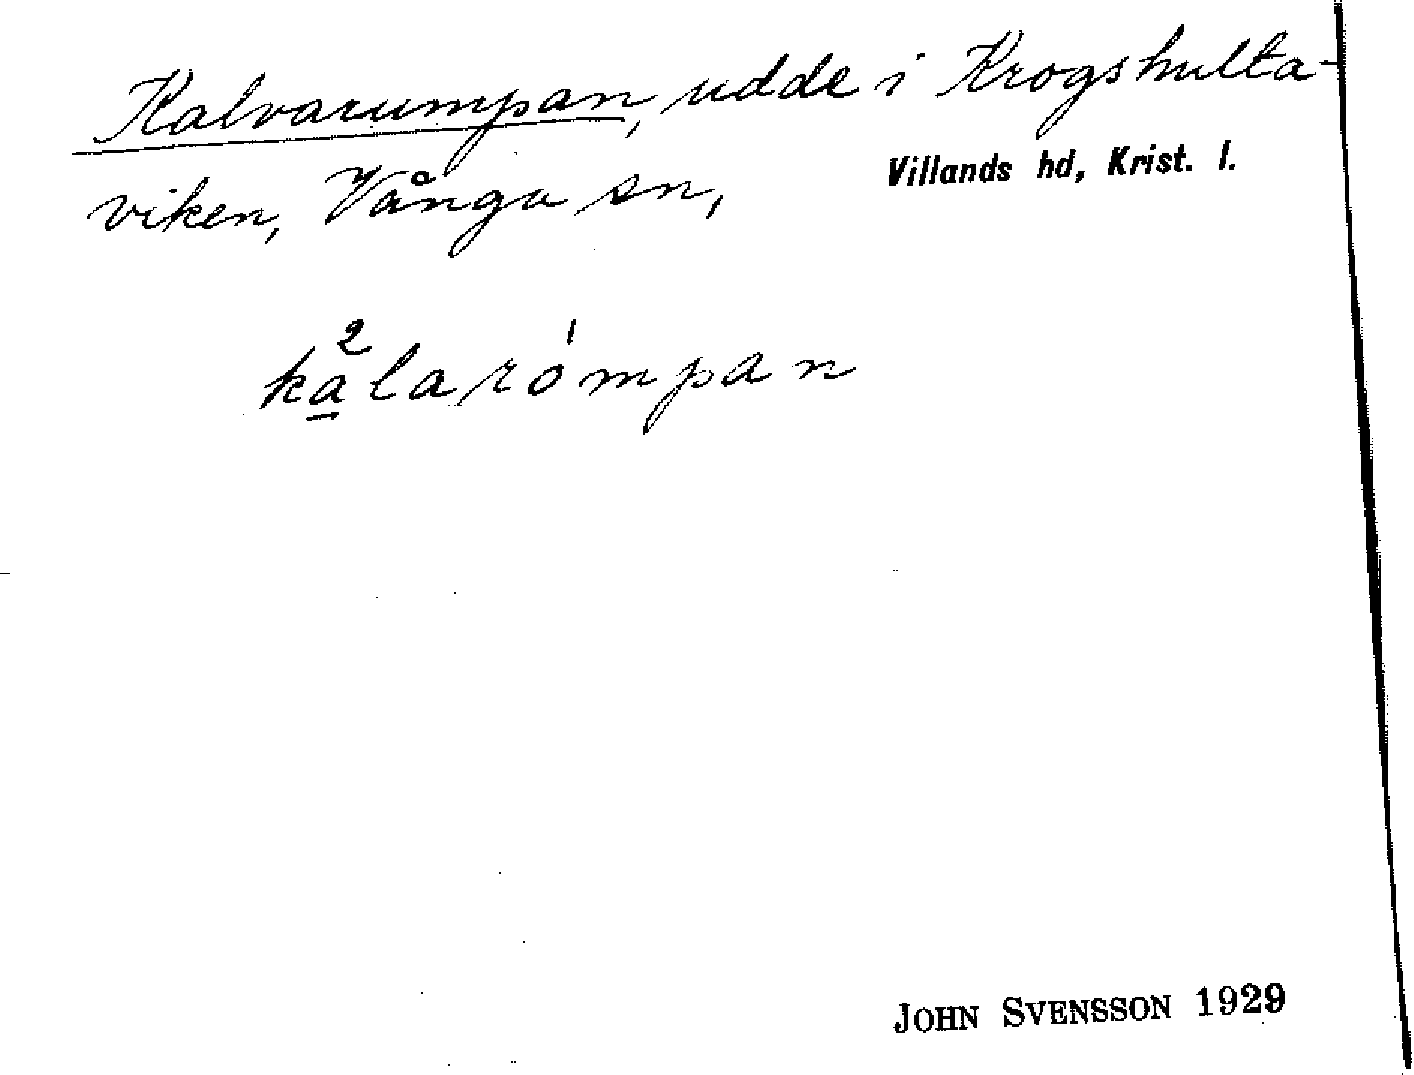 Kalvarumpan, udde i Krogshulta-
viken, Vånga sn, Villands hd, Krist. l.
kalarompan
JOHN SVENSSON 1929